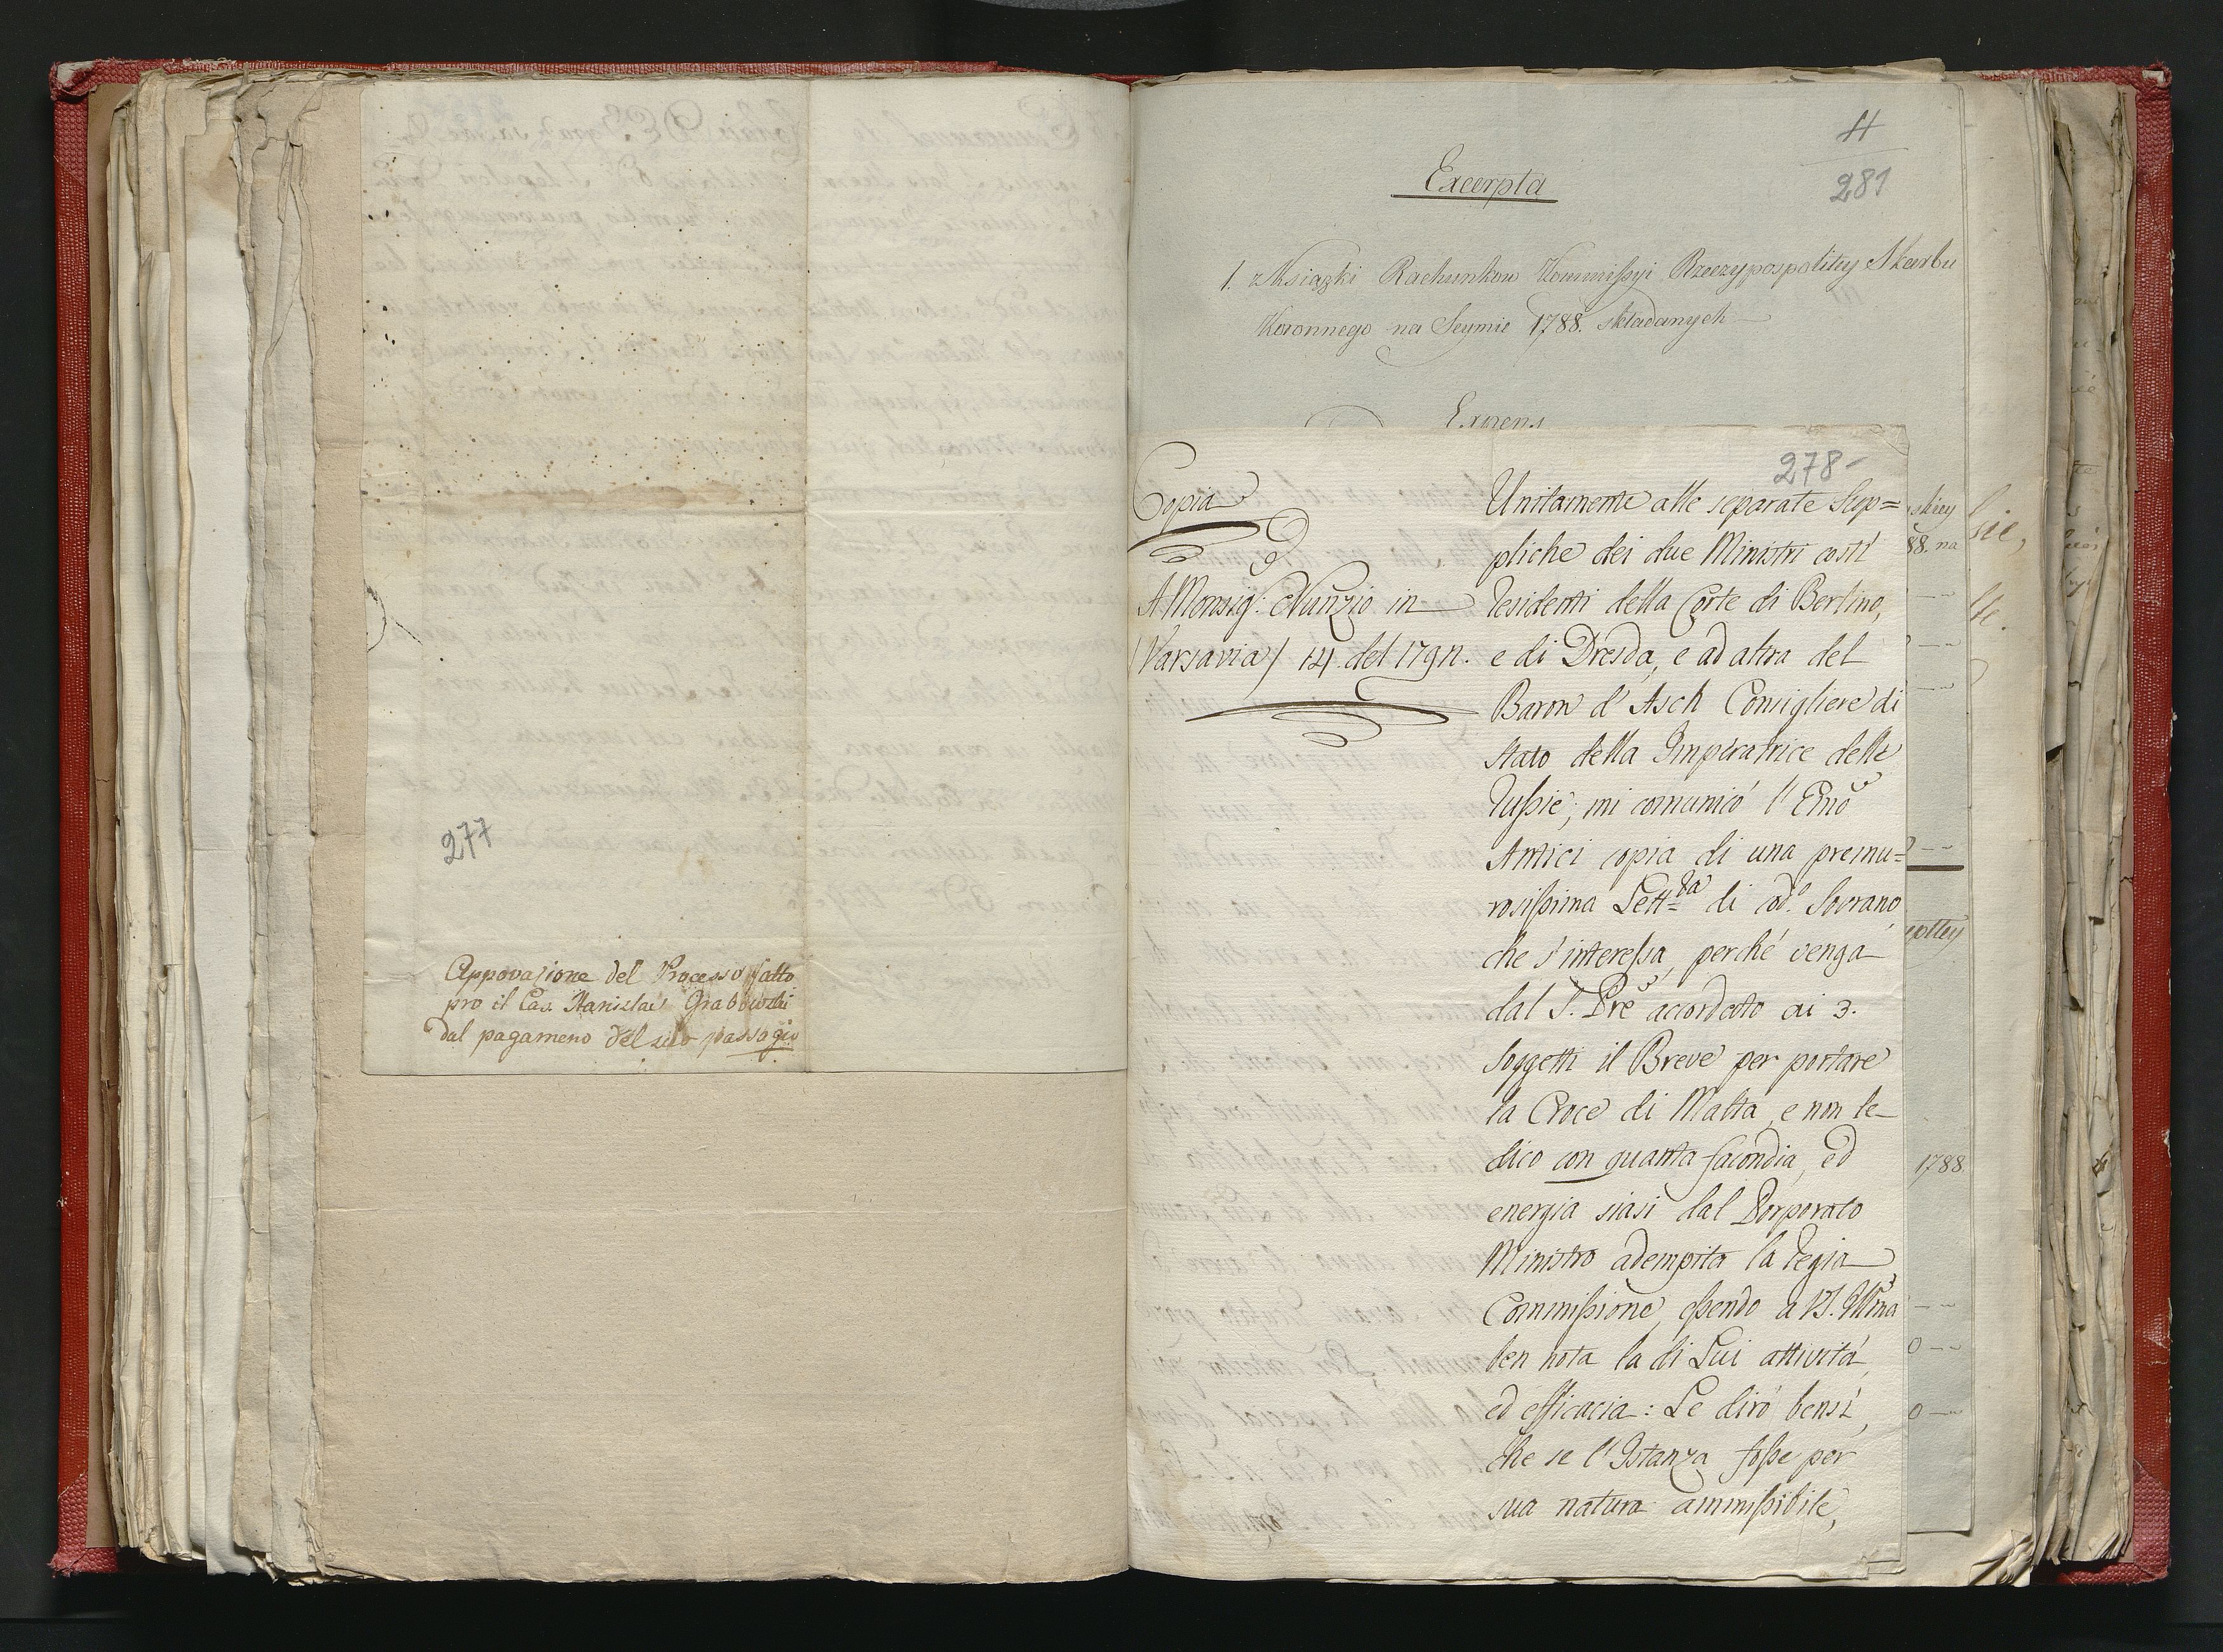 277
Approvazione del Processo fatto
pro il Cav. Stanislao Grabowski
dal pagameno del suo passagio
11
281
Excerpta
1. z Książki Rachunkow Kommissyi Rzeczypospolitey Skarbu
Koronnego na Seymie 1788. składanych
Expens
278
Copia
A Monsig.r Nunzio in
Varsavia / 14. del 1791.
Unitamente alle separate Sup=
pliche dei due Ministri costì
residenti della Corte di Berlino,
e di Dresda, e ad altra del
Baron d'Asch Consigliere di
Stato della Imperatrice delle
Russie; mi comunicò l'Emo
Antici copia di una premu=
rosissima Lettra di cod.o Sovrano,
che s'interessa, perchè venga
dal S. Pre accordato ai 3.
soggetti il Breve per portare
la Croce di Malta, e non le
dico con quanta facondia, ed
energia siasi dal Porporato
Ministro adempita la regia
Commissione, essendo a V.S. Illma
ben nota la di Lui attività,
ed efficacia: Le dirò bensì,
che se l'Istanza fosse per
sua natura ammissibile,
skiey
88. na
1788
0
0